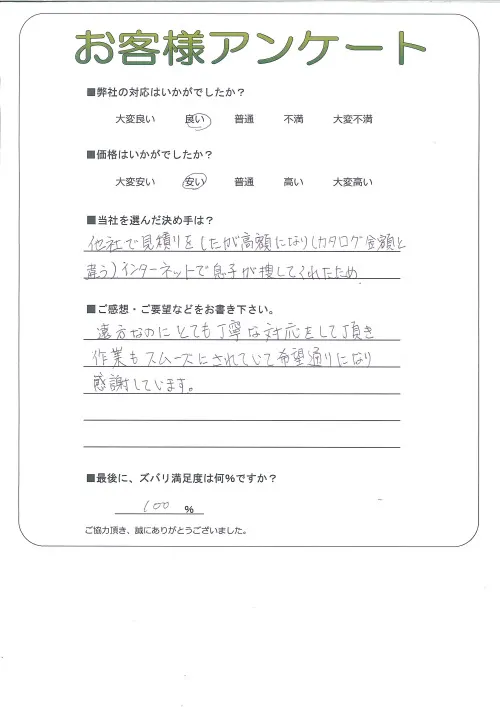 お客様アンケート
■弊社の対応はいかがでしたか？
大変良い 良い 普通 不満 大変不満
■価格はいかがでしたか？
大変安い 安い 普通 高い 大変高い
■当社を選んだ決め手は？
他社で見積りをしたが高額になり(カタログ金額と
違う)インターネットで息子が捜してくれたため
■ご感想・ご要望などをお書き下さい。
遠方なのにとても丁寧な対応をして頂き
作業もスムースにされていて希望通りになり
感謝しています。
■最後に、ズバリ満足度は何%ですか？
100 %
ご協力頂き、誠にありがとうございました。